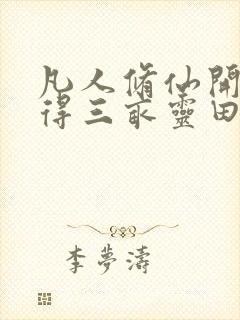 凡人脩仙開
得三畝靈田
李夢濤